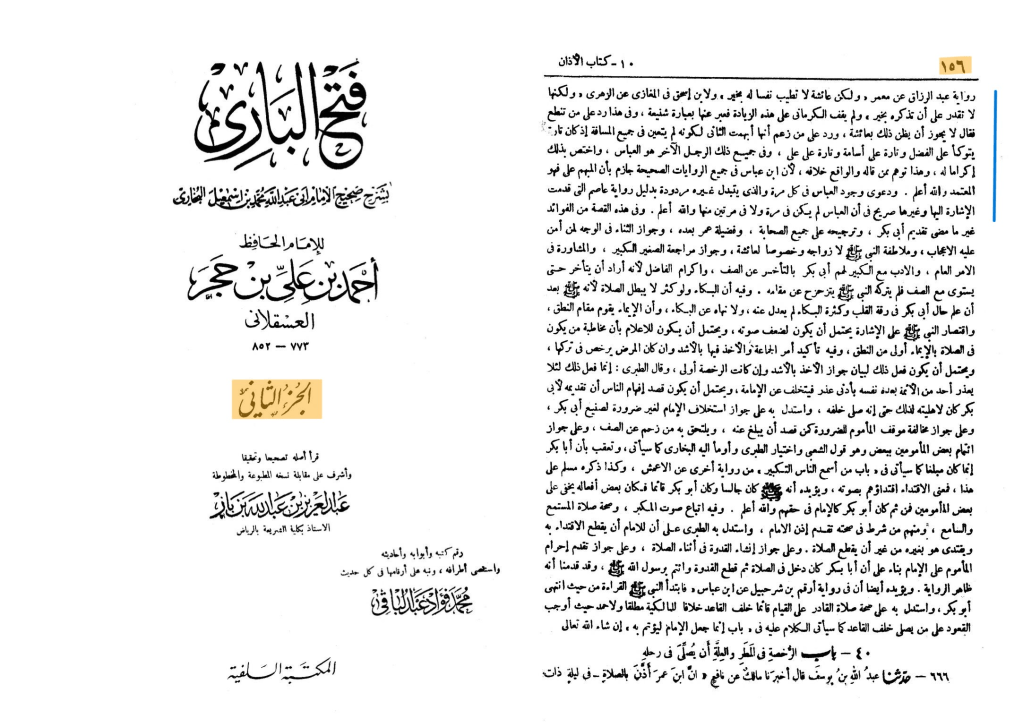 ١٥٦
١٠ - كتاب الأذان
رواية عبد الرزاق عن معمر « ولكن عائشة لا تطيب نفسا له بخير » ولابن إسحق فى المغازى عن الزهرى « ولكنها
لا تقدر على أن تذكره بخير » ولم يقف الكرمانى على هذه الزيادة فعبر عنها بعبارة شنيعة ، وفى هذا رد على من تنطع
فقال لا يجوز أن يظن ذلك بعائشة ، ورد على من زعم أنها أبهمت الثانى لكونه لم يتعين فى جميع المسافة إذ كان تارة
يتوكأ على الفضل وتارة على أسامة وتارة على على ، وفى جميع ذلك الرجل الآخر هو العباس ، واختص بذلك
إكراما له ، وهذا توهم ممن قاله والواقع خلافه ، لأن ابن عباس فى جميع الروايات الصحيحة جازم بأن المبهم على فهو
المعتمد والله أعلم . ودعوى وجود العباس فى كل مرة والذى يتبدل غيره مردودة بدليل رواية عاصم التى قدمت
الإشارة اليها وغيرها صريح فى أن العباس لم يكن فى مرة ولا فى مرتين منها والله أعلم . وفى هذه القصة من الفوائد
غير ما مضى تقديم أبى بكر ، وترجيحه على جميع الصحابة ، وفضيلة عمر بعده ، وجواز الثناء فى الوجه لمن أمن
عليه الاعجاب ، وملاطفة النبى ﷺ لازواجه وخصوصا لعائشة ، وجواز مراجعة الصغير الكبير ، والمشاورة فى
الامر العام ، والادب مع الكبير لهم أبى بكر بالتأخر عن الصف ، واكرام الفاضل لأنه أراد أن يتأخر حتى
يستوى مع الصف فلم يتركه النبى ﷺ يتزحزح عن مقامه . وفيه أن البكاء ولو كثر لا يبطل الصلاة لأنه ﷺ بعد
أن علم حال أبى بكر فى رقة القلب وكثرة البكاء لم يعدل عنه ، ولا نهاه عن البكاء ، وأن الإيماء يقوم مقام النطق ،
واقتصار النبى ﷺ على الإشارة يحتمل أن يكون لضعف صوته ، ويحتمل أن يكون للاعلام بأن مخاطبة من يكون
فى الصلاة بالإيماء أولى من النطق ، وفيه تأكيد أمر الجماعة والأخذ فيها بالأشد وان كان المرض يرخص فى تركها ،
ويحتمل أن يكون فعل ذلك لبيان جواز الأخذ بالأشد وإن كانت الرخصة أولى ، وقال الطبرى : إنما فعل ذلك لئلا
يعذر أحد من الأئمة بعده نفسه بأدنى عذر فيتخلف عن الإمامة ، ويحتمل أن يكون قصد إفهام الناس أن تقديمه لأبى
بكر كان لاهليته لذلك حتى إنه صلى خلفه ، واستدل به على جواز استخلاف الإمام لغير ضرورة لصنيع أبى بكر ،
وعلى جواز مخالفة موقف المأموم للضرورة كمن قصد أن يبلغ عنه ، ويلتحق به من زحم عن الصف ، وعلى جواز
ائتمام بعض المأمومين ببعض وهو قول الشعبى واختيار الطبرى وأومأ اليه البخارى كما سيأتى ، وتعقب بأن أبا بكر
إنما كان مبلغا كما سيأتى فى « باب من أسمع الناس التكبير » من رواية أخرى عن الاعمش ، وكذا ذكره مسلم على
هذا ، فمعنى الاقتداء اقتداؤهم بصوته ، ويؤيده أنه ﷺ كان جالسا وكان أبو بكر قائما فكان بعض أفعاله يخفى على
بعض المأمومين فمن ثم كان أبو بكر كالإمام فى حقهم والله أعلم . وفيه اتباع صوت المكبر ، وصحة صلاة المستمع
والسامع ، ومنهم من شرط فى صحته تقدم إذن الامام ، واستدل به الطبرى على أن للامام أن يقطع الاقتداء به
ويقتدى هو بغيره من غير أن يقطع الصلاة . وعلى جواز إنشاء القدوة فى أثناء الصلاة ، وعلى جواز تقدم إحرام
المأموم على الإمام بناء على أن أبا بكر كان دخل فى الصلاة ثم قطع القدوة وائتم برسول الله ﷺ ، وقد قدمنا أنه
ظاهر الرواية . ويؤيده أيضا أن فى رواية أرقم بن شرحبيل عن ابن عباس « فابتدأ النبى ﷺ القراءة من حيث انتهى
أبو بكر ، واستدل به على صحة صلاة القادر على القيام قائما خلف القاعد خلافا للمالكية مطلقا ولاحمد حيث أوجب
القعود على من يصلى خلف القاعد كما سيأتى الكلام عليه فى « باب إنما جعل الإمام ليؤتم به » إن شاء الله تعالى
٤٠ - باب الرُّخصة فى المَطر والعِلَّة أن يُصلِّىَ فى رحلِه
٦٦٦ - حدّثنا عبدُ الله بنُ يوسفَ قال أخبرَنا مالكٌ عن نافعٍ « انَّ ابنَ عمرَ أَذَّنَ بالصلاةِ - فى ليلةٍ ذات
فتح البارى
بشرح صحيح الإمام أبى عبد الله محمد بن إسمعيل البخارى
للإمام الحافظ
أحمد بن على بن حجر
العسقلانى
٧٧٣ - ٨٥٢
الجزء الثانى
قرأ أصله تصحيحا وتحقيقا
وأشرف على مقابلة نسخه المطبوعة والمخطوطة
عبد العزيز بن عبد الله بن باز
الأستاذ بكلية الشريعة بالرياض
رقم كتبه وأبوابه وأحاديثه
واستقصى أطرافه ، ونبه على أرقامها فى كل حديث
محمد فؤاد عبد الباقى
المكتبة السلفية